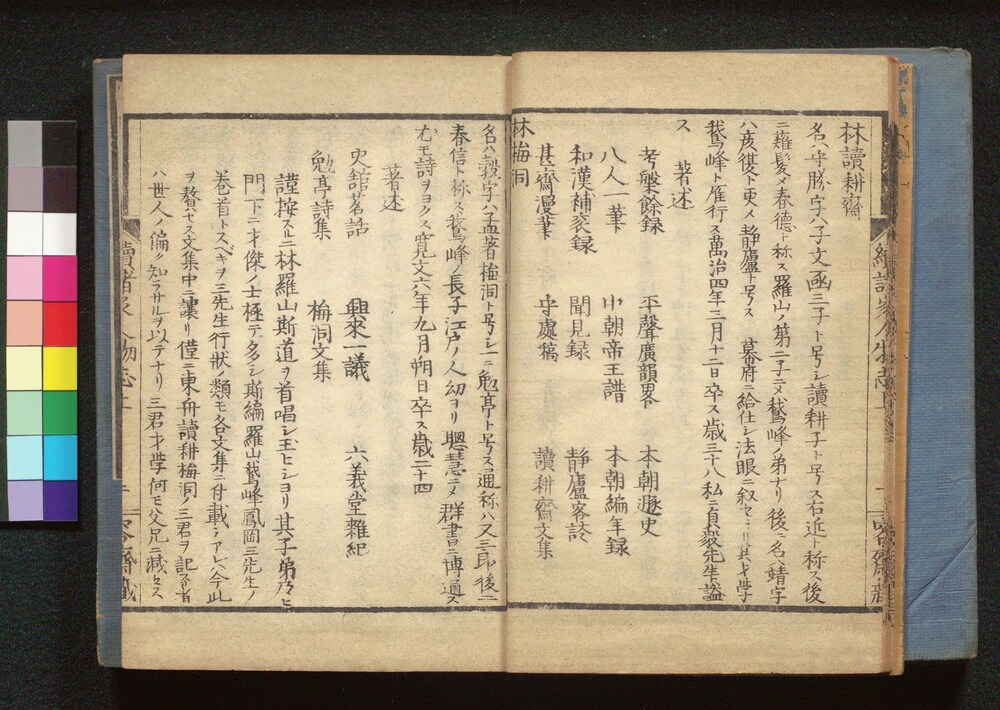 林讀耕齋
名ハ守勝字ハ子文函三子ト号シ讀耕子ト号ス右近ト称ス後
ニ薙髪メ春德ト称ス羅山ノ第二子ニメ鵞峰ノ弟ナリ後ニ名ハ靖字
ハ彦復ト更メ静廬ト号ス 幕府ニ給仕シ法眼ニ叙セラル其才学
鵞峰ト雁行ス萬治四年三月十二日卒ス歳三十八私ニ貞毅先生ト謚
ス
著述
考槃餘録 平聲廣韻畧 本朝遯史
八人一筆 小朝帝王譜 本朝編年録
和漢補袞録 聞見録 静廬客談
甚齋漫筆 守處稿 讀耕齋文集
林梅洞
名ハ愨字ハ孟著梅洞ト号シ一ニ勉亭ト号ス通称ハ又三郎後ニ
春信ト称ス鵞峰ノ長子江戸ノ人幼ヨリ聰慧ニメ群書ニ博通ス
尤モ詩ヲヨクス寛文六年九月朔日卒ス歳二十四
著述
史舘茗話 興來一議 六義堂雜紀
勉亭詩集 梅洞文集
謹按スルニ林羅山斯道ヲ首唱シ玉ヒシヨリ其子弟乃ヒ
門下ニ才傑ノ士極テ多シ斯編羅山鵞峰鳳岡三先生ノ
巻首トスベキヲ三先生行状ノ類モ各文集ニ付載シアレハ今此
ヲ贅セス文集中ニ讓リ僅ニ東舟讀耕梅洞ノ三君ヲ記スル者
ハ世人ノ偏ク知ラサルヲ以テナリ三君才学何モ父兄ニ減セス
續諸家人物志